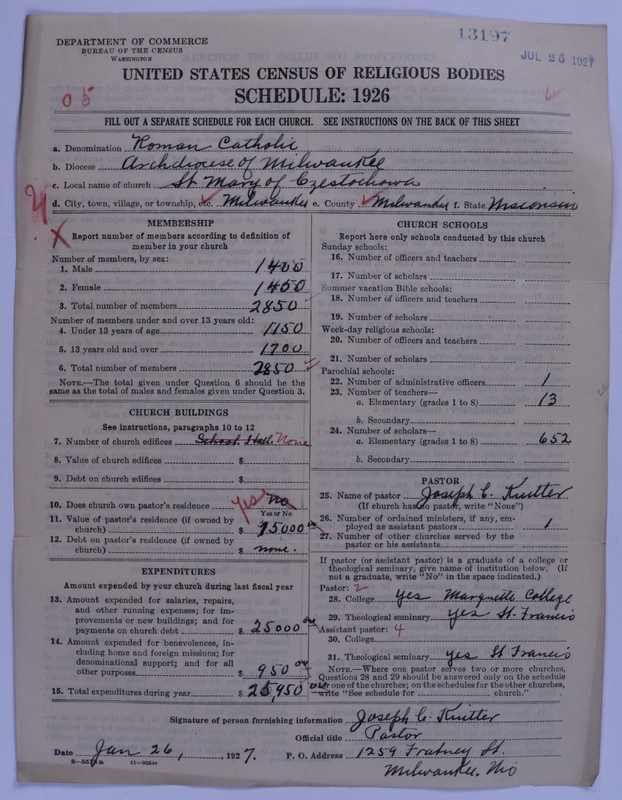 13197
JUL 26 1927
DEPARTMENT OF COMMERCE
BUREAU OF THE CENSUS
WASHINGTON
UNITED STATES CENSUS OF RELIGIOUS BODIES
SCHEDULE: 1926
05
FILL OUT A SEPARATE SCHEDULE FOR EACH CHURCH. SEE INSTRUCTIONS ON THE BACK OF THIS SHEET
a. Denomination Roman Catholic
b. Diocese Archdiocese of Milwaukee
c. Local name of church St Mary of Czestochowa
d. City, town, village, or township, etc. Milwaukee e. County Milwaukee f. State Wisconsin
MEMBERSHIP
Report number of members according to definition of
member in your church
Number of members, by sex:
1. Male 1400
2. Female 1450
3. Total number of members 2850
Number of members under and over 13 years old:
4. Under 13 years of age 1150
5. 13 years old and over 1700
6. Total number of members 2850
NOTE.—The total given under Question 6 should be the
same as the total of males and females given under Question 3.
CHURCH BUILDINGS
See instructions, paragraphs 10 to 12
7. Number of church edifices School Hall. None
8. Value of church edifices $
9. Debt on church edifices $
10. Does church own pastor's residence Yes No
Yes or No
11. Value of pastor's residence (if owned by
church) $ 15000 00
12. Debt on pastor's residence (if owned by
church) $ none.
EXPENDITURES
Amount expended by your church during last fiscal year
13. Amount expended for salaries, repairs,
and other running expenses; for im-
provements or new buildings; and for
payments on church debt $ 25000 00
14. Amount expended for benevolences, in-
cluding home and foreign missions; for
denominational support; and for all
other purposes $ 950 00
15. Total expenditures during year $ 25,950 00
CHURCH SCHOOLS
Report here only schools conducted by this church
Sunday schools:
16. Number of officers and teachers
17. Number of scholars
Summer vacation Bible schools:
18. Number of officers and teachers
19. Number of scholars
Week-day religious schools:
20. Number of officers and teachers
21. Number of scholars
Parochial schools:
22. Number of administrative officers 1
23. Number of teachers—
a. Elementary (grades 1 to 8) 13
b. Secondary
24. Number of scholars—
a. Elementary (grades 1 to 8) 652
b. Secondary
PASTOR
25. Name of pastor Joseph C. Knitter
(If church has no pastor, write "None")
26. Number of ordained ministers, if any, em-
ployed as assistant pastors 1
27. Number of other churches served by the
pastor or his assistants
If pastor (or assistant pastor) is a graduate of a college or
theological seminary, give name of institution below. (If
not a graduate, write "No" in the space indicated.)
Pastor: 2
28. College yes Marquette College
29. Theological seminary yes St. Francis
Assistant pastor: 4
30. College
31. Theological seminary yes St Francis
NOTE.—Where one pastor serves two or more churches,
Questions 28 and 29 should be answered only on the schedule
for one of the churches; on the schedules for the other churches,
write "See schedule for church."
Signature of person furnishing information Joseph C. Knitter
Official title Pastor
Date Jan 26, 1927. P. O. Address 1259 Fratney St.
Milwaukee, Wis
11—9554a